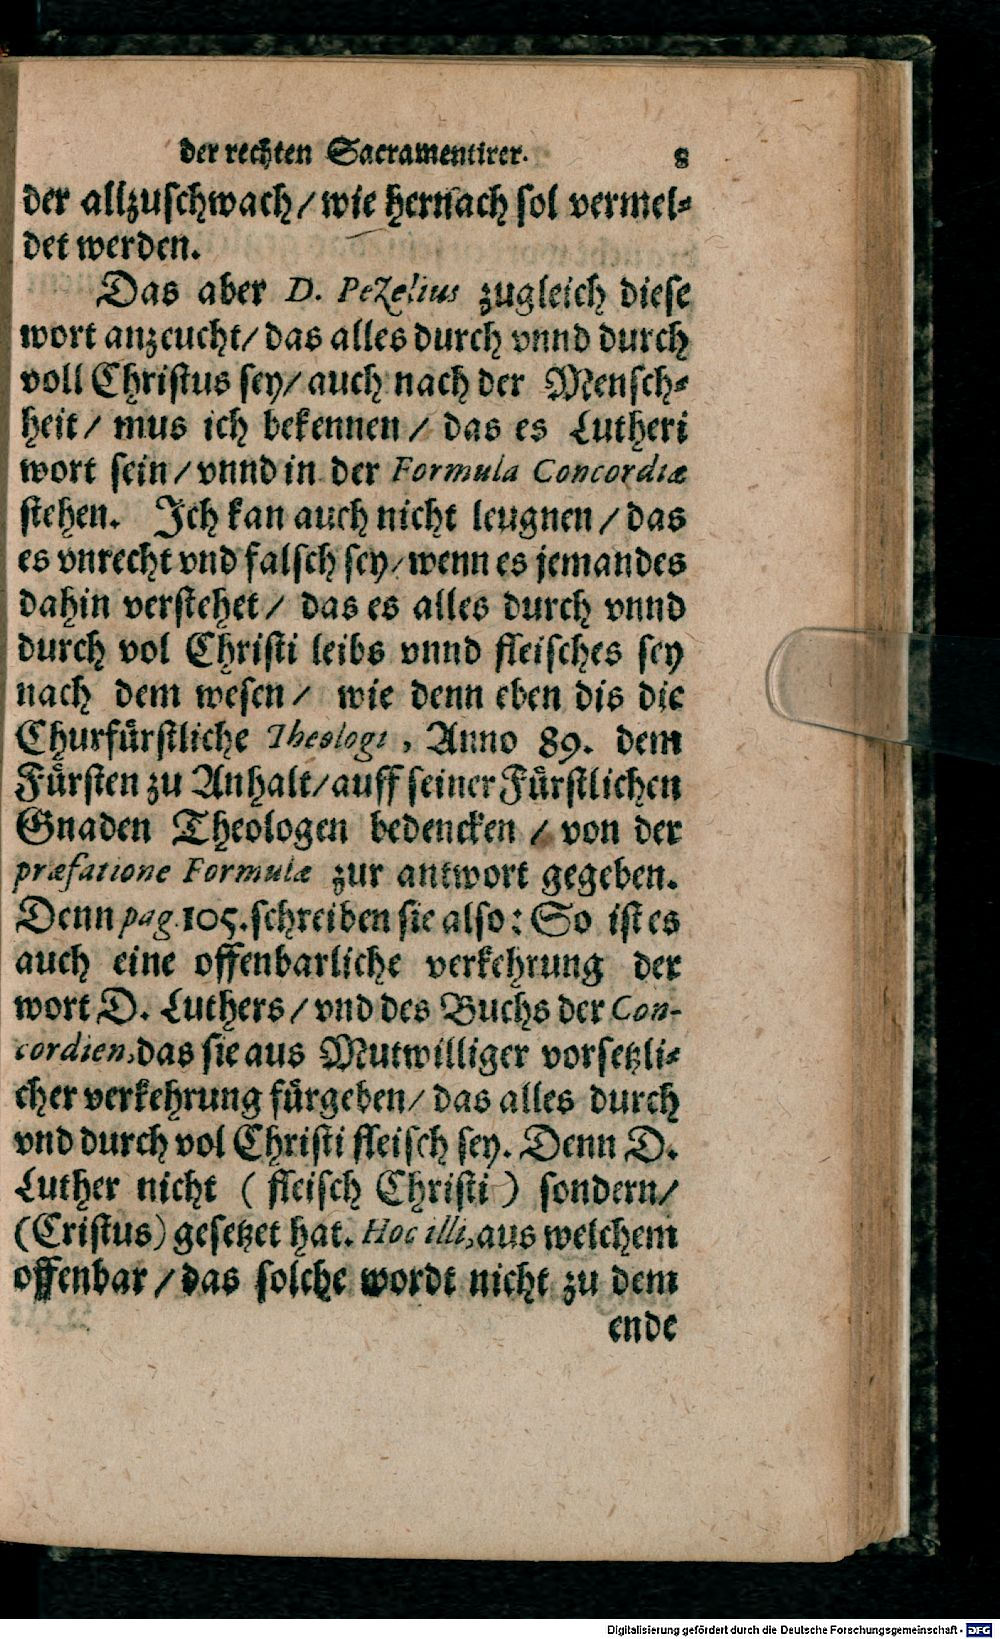 der rechten Sacramentirer. 8
der allzuschwach/ wie hernach sol vermel⸗
det werden.
Das aber D. Pezelius zugleich diese
wort anzeucht/ das alles durch vnnd durch
voll Christus sey/ auch nach der Mensch⸗
heit/ mus ich bekennen/ das es Lutheri
wort sein/ vnnd in der Formula Concordiæ
stehen. Ich kan auch nicht leugnen/ das
es vnrecht vnd falsch sey/ wenn es jemandes
dahin verstehet/ das es alles durch vnnd
durch vol Christi leibs vnnd fleisches sey
nach dem wesen/ wie denn eben dis die
Churfürstliche Theologi, Anno 89. dem
Fürsten zu Anhalt/ auff seiner Fürstlichen
Gnaden Theologen bedencken/ von der
præfatione Formulæ zur antwort gegeben.
Denn pag. 105. schreiben sie also: So ist es
auch eine offenbarliche verkehrung der
wort D. Luthers/ vnd des Buchs der Con-
cordien, das sie aus Mutwilliger vorsetzli⸗
cher verkehrung fürgeben/ das alles durch
vnd durch vol Christi fleisch sey. Denn D.
Luther nicht (fleisch Christi) sondern/
(Cristus) gesetzet hat. Hoc illi, aus welchem
offenbar/ das solche wordt nicht zu dem
ende
Digitalisierung gefördert durch die Deutsche Forschungsgemeinschaft - DFG